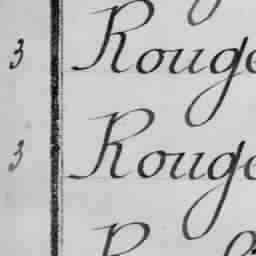 3 Rouge
3 Rouge